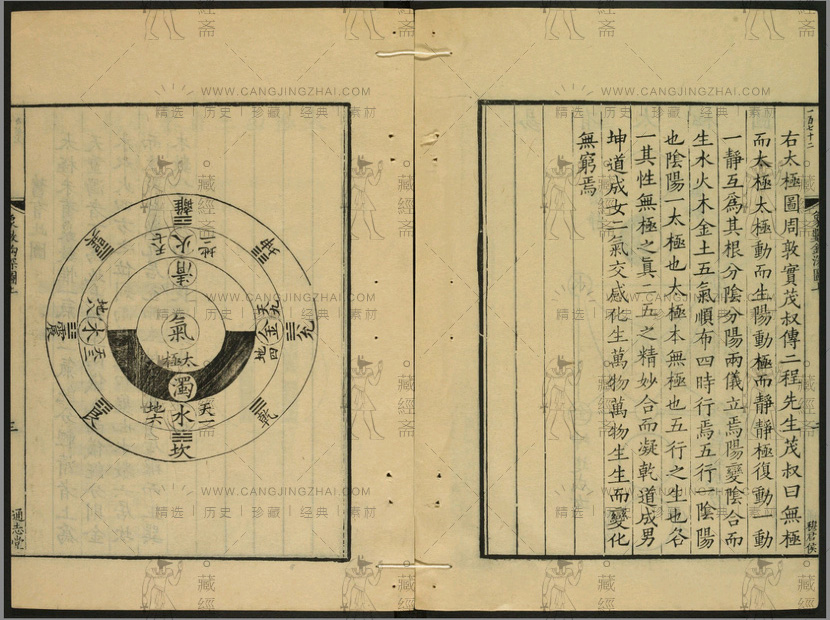 一百七十二
右太極圖周敦實茂叔傳二程先生茂叔曰無極
而太極太極動而生陽動極而靜靜極復動一動
一靜互爲其根分陰分陽兩儀立焉陽變陰合而
生水火木金土五氣順布四時行焉五行一陰陽
也陰陽一太極也太極本無極也五行之生也各
一其性無極之眞二五之精妙合而凝乾道成男
坤道成女二氣交感化生萬物萬物生生而變化
無窮焉
離
地二 火 天七
坤
清
天九 金 地四
兌
氣
太極
地八 木 天三
震
巽
濁
天一 水 地六
乾
艮
坎
通志堂
WWW.CANGJINGZHAI.COM
精选 | 历史 | 珍藏 | 经典 | 素材
藏經斋